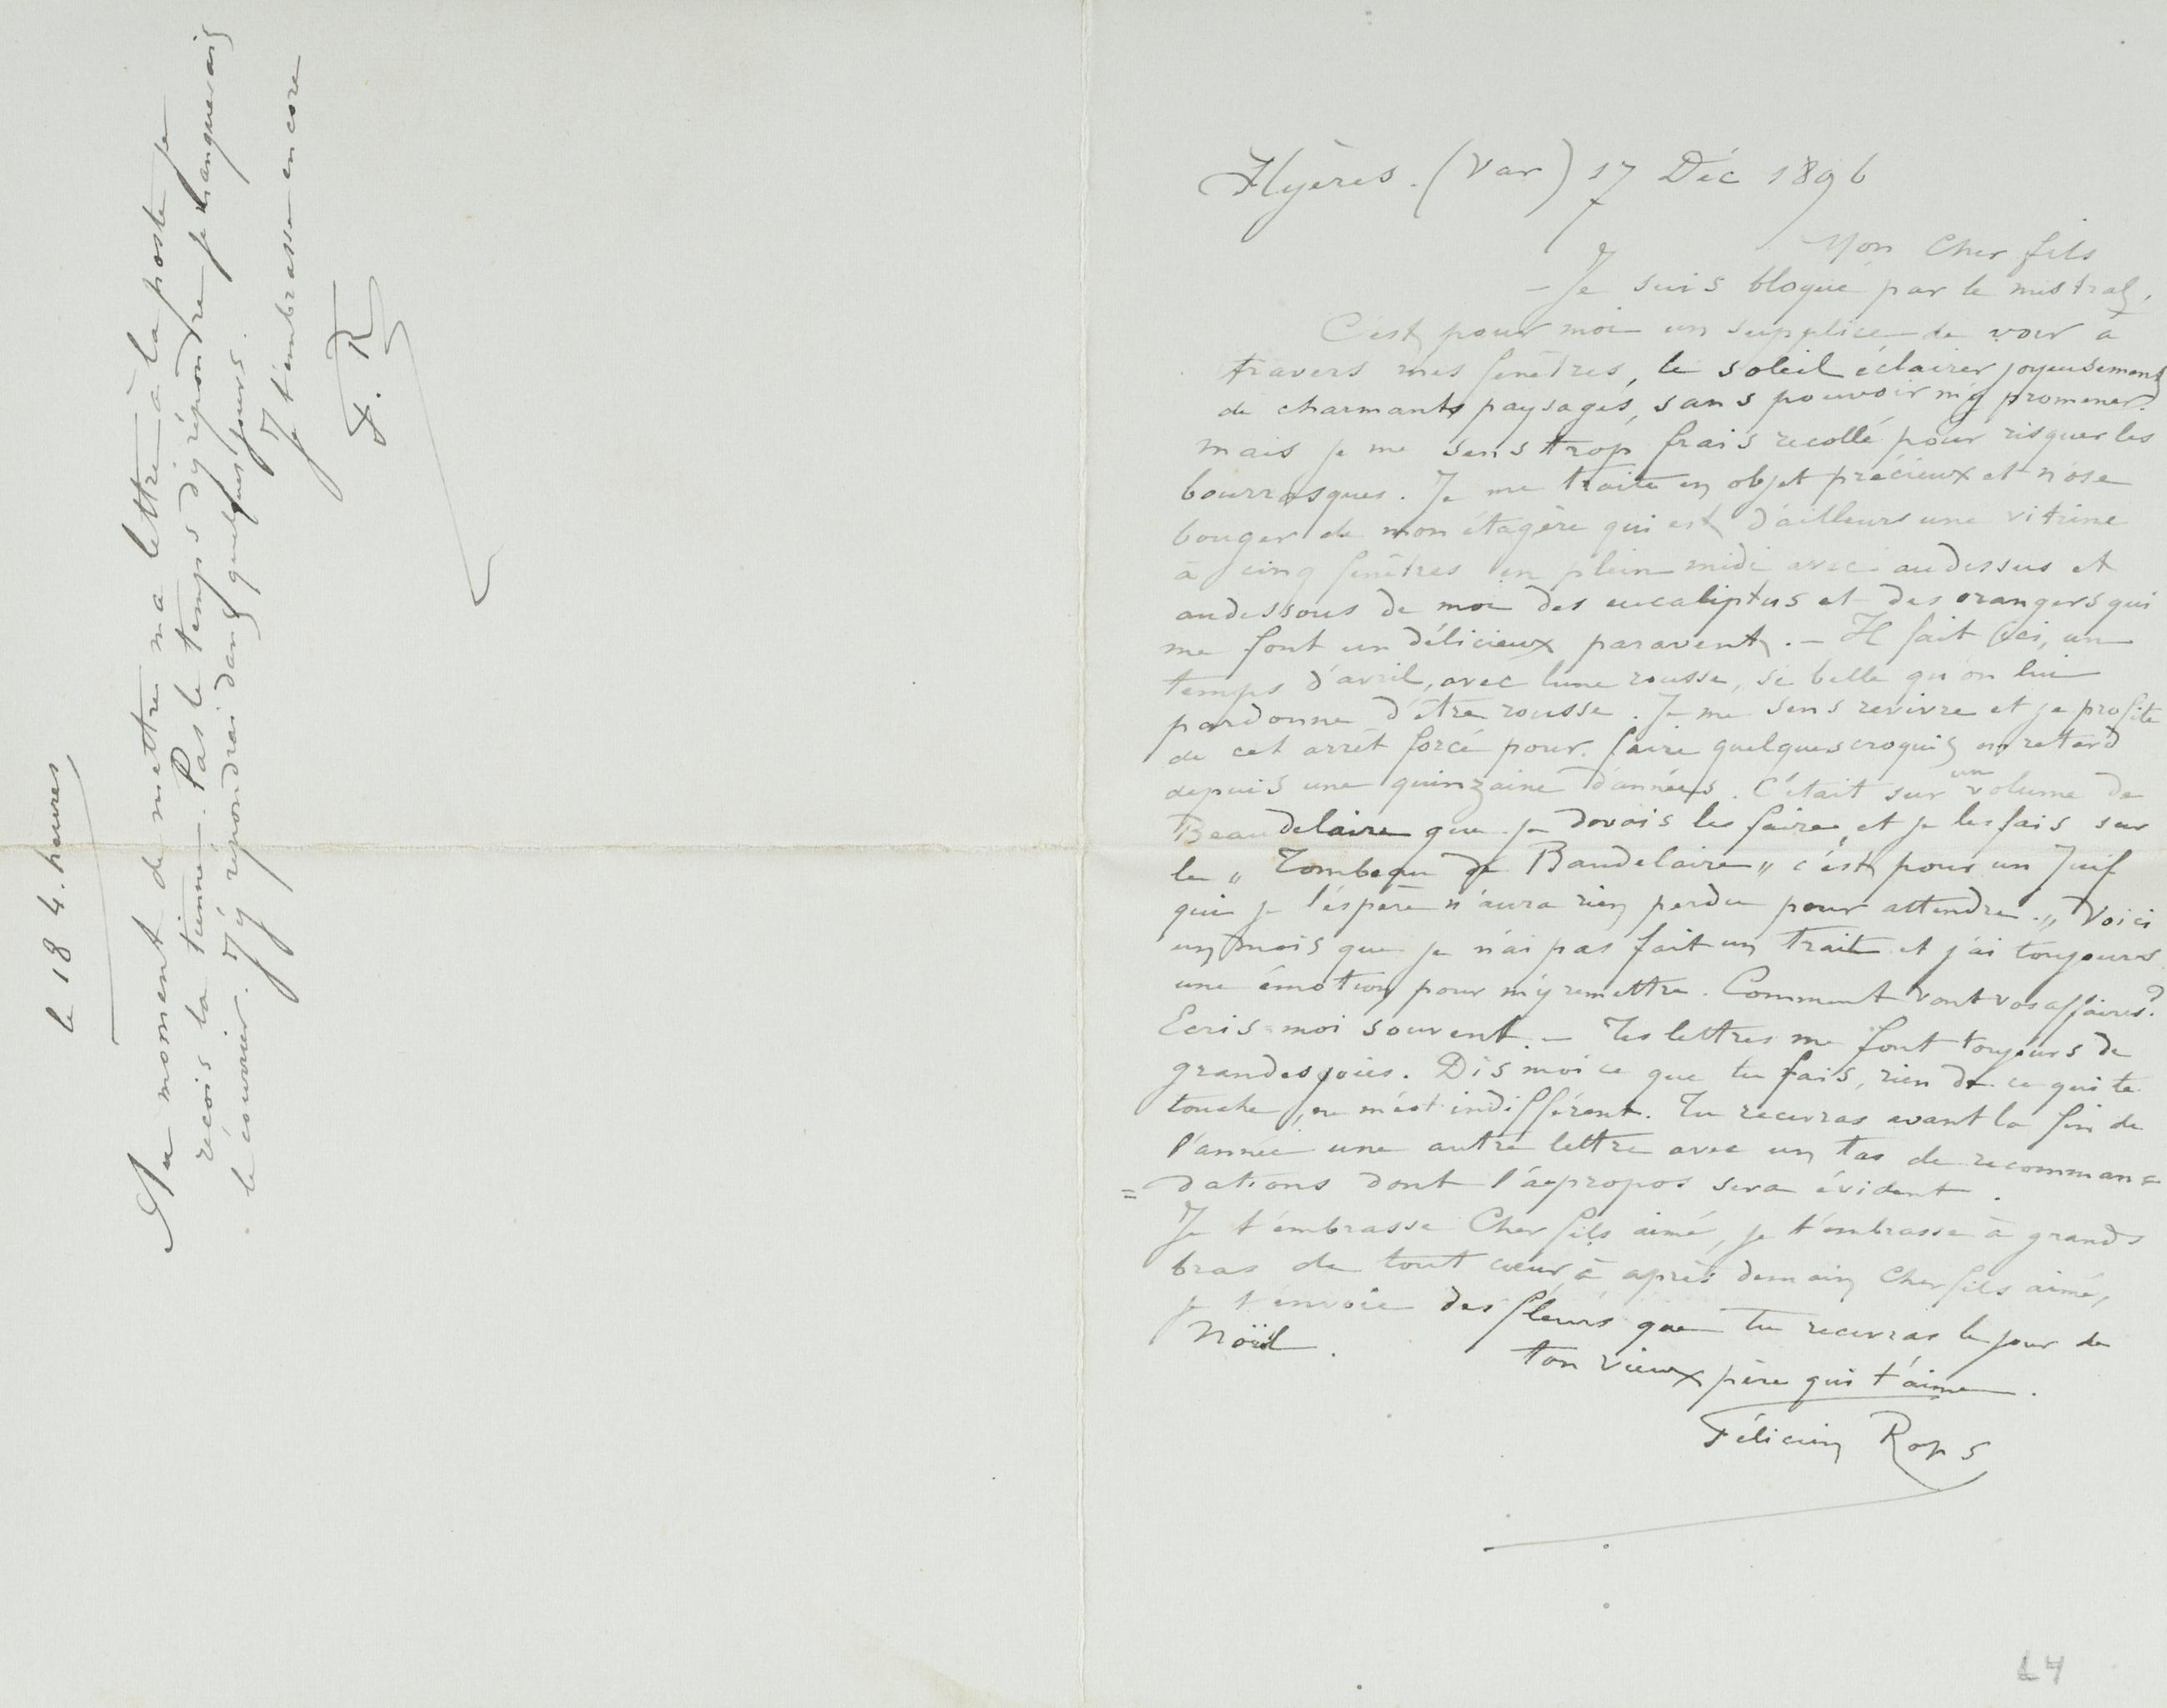 Hyères. (Var) 17 Déc 1896
Mon Cher fils
– Je suis bloqué par le mistral,
C'est pour moi un supplice de voir à
travers mes fenêtres, le soleil éclairer joyeusement
de charmants paysages, sans pouvoir m'y promener.
mais je me sens trop frais recollé pour risquer les
bourrasques. Je me traite en objet précieux et n'ose
bouger de mon étagère qui est d'ailleurs une vitrine
à cinq fenêtres en plein midi avec audessus et
audessous de moi des eucaliptus et des orangers qui
me font un délicieux paravent. – Il fait ici, un
temps d'avril, avec lune rousse, si belle qu'on lui
pardonne d'être rousse. Je me sens revivre et je profite
de cet arrêt forcé pour faire quelques croquis en retard
depuis une quinzaine d'années. C'était sur un volume de
Beaudelaire que je devais les faire, et je les fais sur
le „ Tombeau de Baudelaire „ c'est pour un Juif
qui je l'espère n'aura rien perdu pour attendre. „ Voici
un mois que je n'ai pas fait un trait et j'ai toujours
une émotion pour m'y remettre. Comment vont vos affaires?
Ecris-moi souvent. – Tes lettres me font toujours de
grandes joies. Dis moi ce que tu fais, rien de ce qui te
touche, ne m'est indifférent. Tu recevras avant la fin de
l'année une autre lettre avec un tas de recomman=
= dations dont l'àpropos sera évident.
Je t'embrasse Cher fils aimé, je t'embrasse à grands
bras de tout cœur, à après demain Cher fils aimé,
je t'envoie des fleurs que tu recevras le jour de
Noël.
ton vieux père qui t'aime.
Félicien Rops
le 18 4. heures
Au moment de mettre ma lettre à la poste je
reçois la tienne. Pas le temps d'y répondre je manquerais
le courrier. J'y répondrai dans quelques jours.
Je t'embrasse encore
F. R
L4